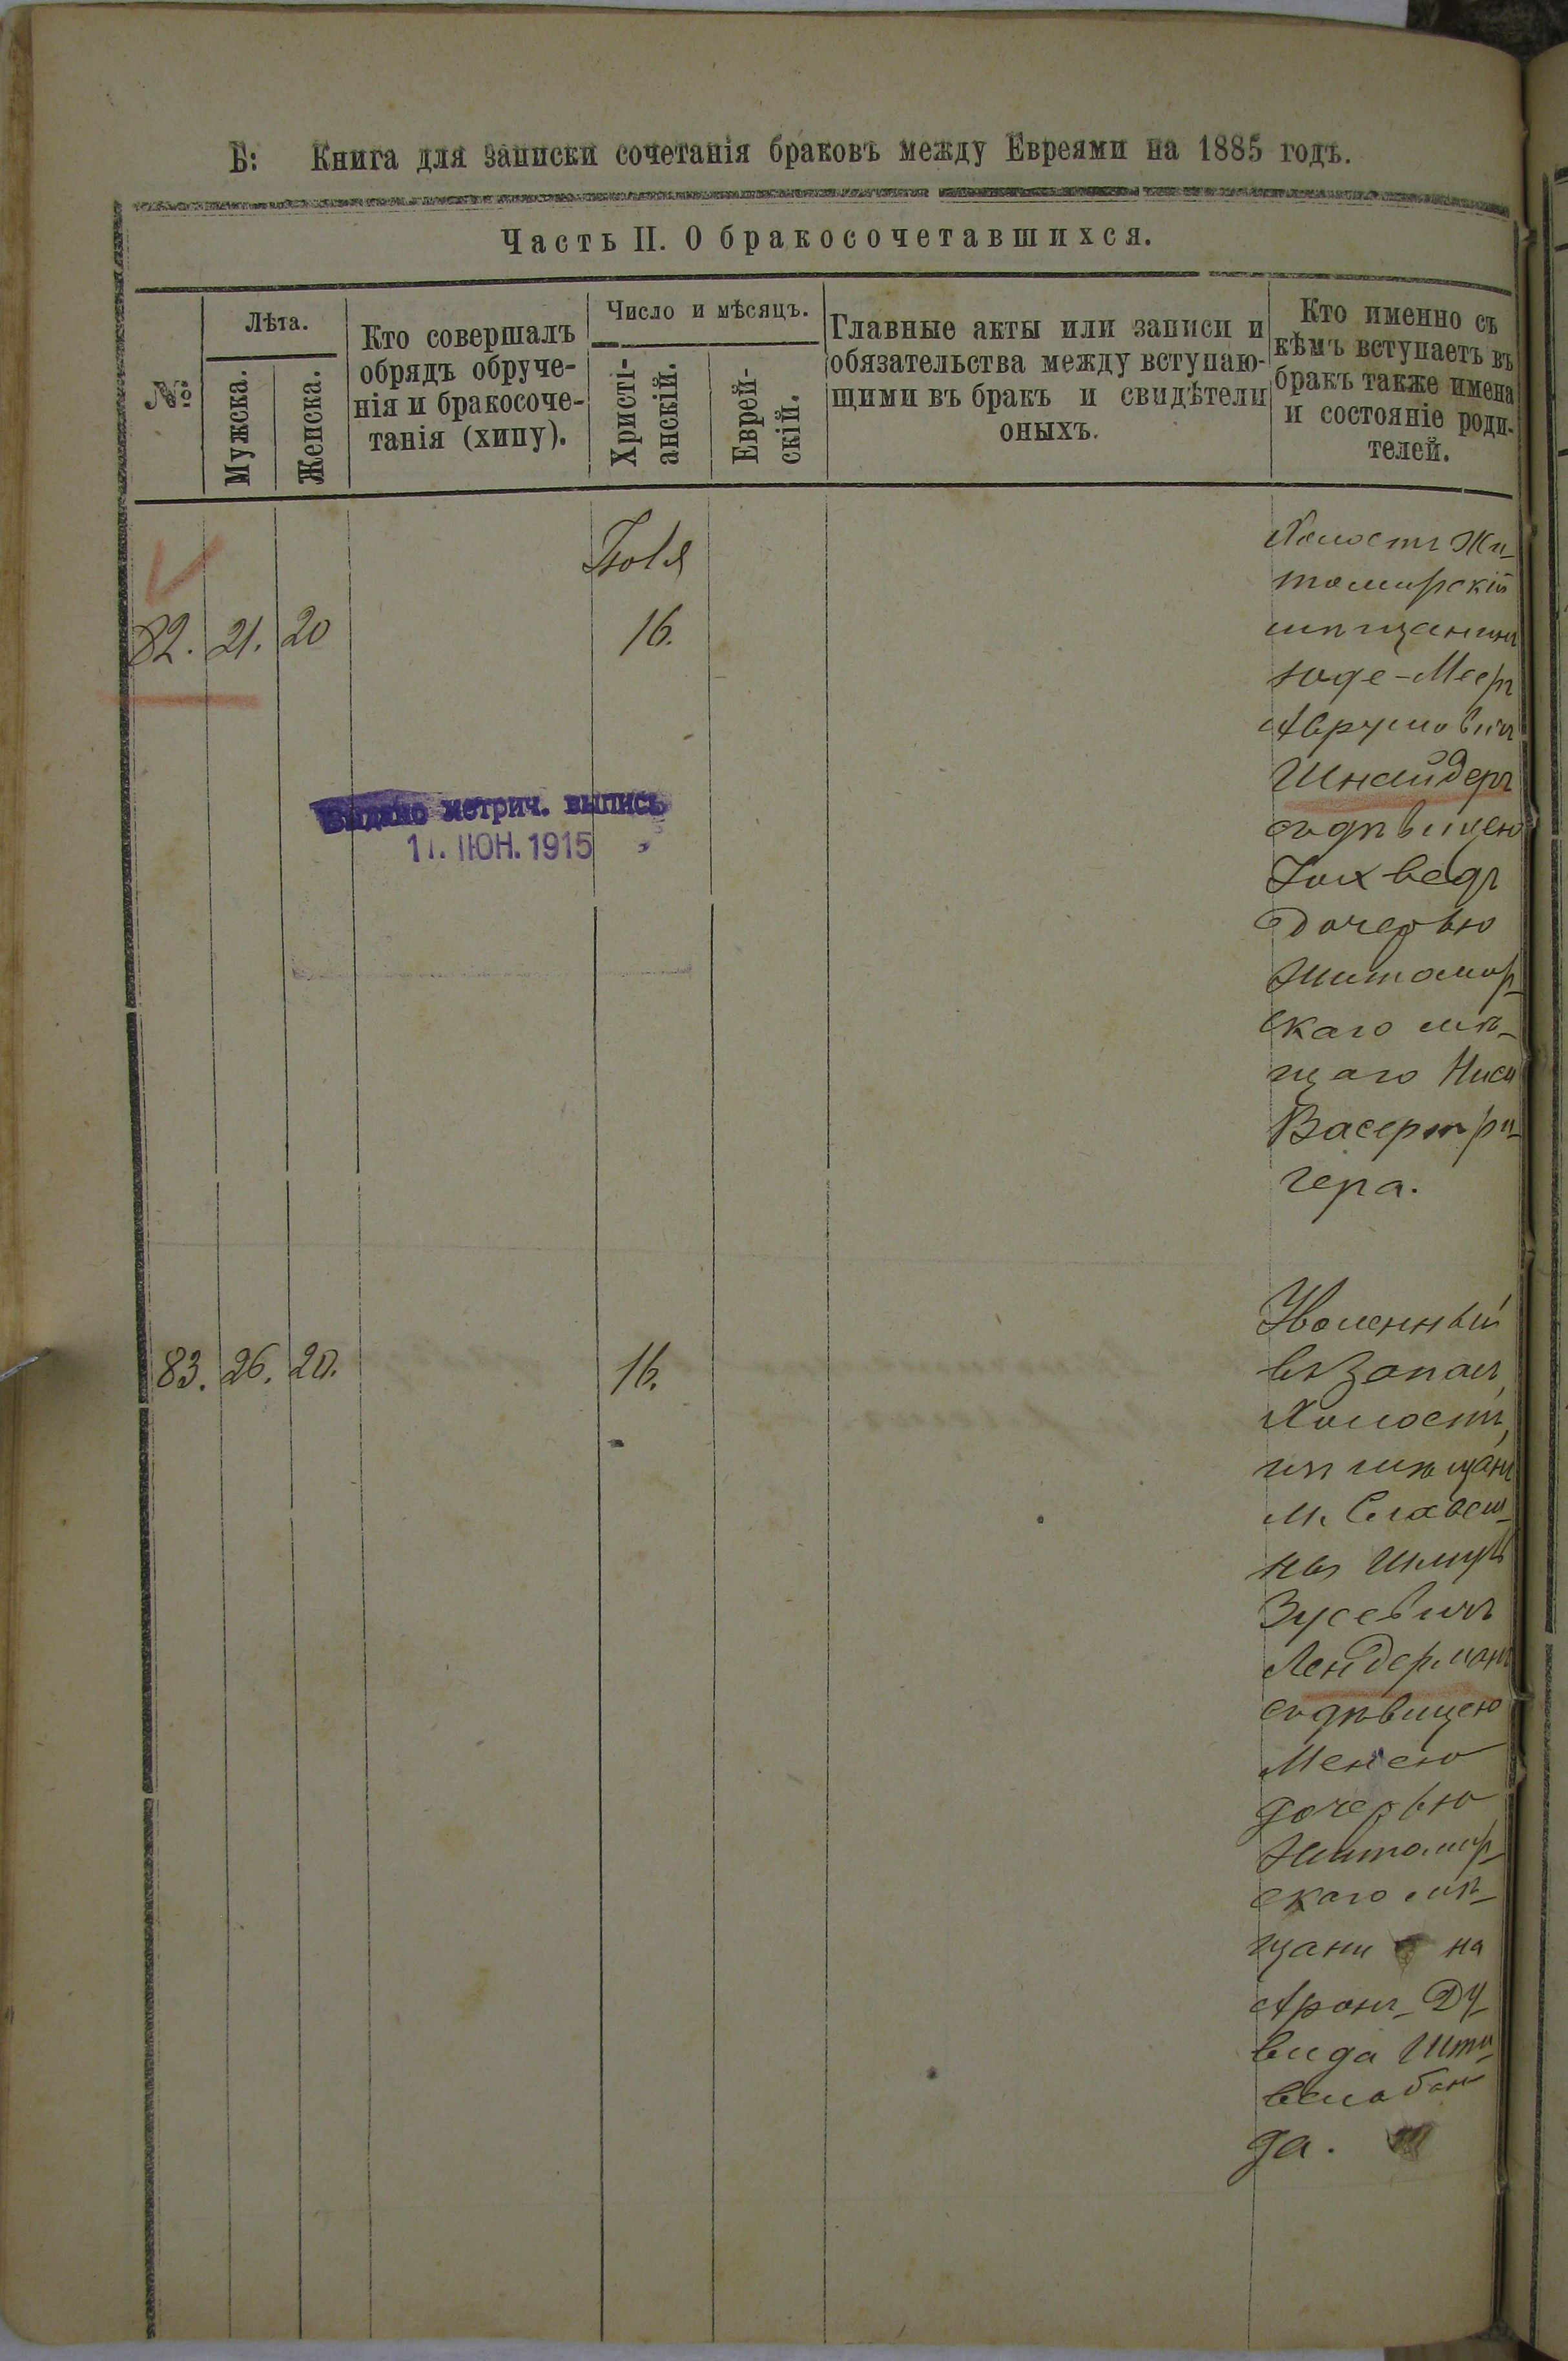 Б: Книга для записки сочетанія браковъ между Евреями на 1885 годъ.
Часть II. О бракосочетавшихся.
№
Лѣта.
Мужска.
Женска.
Кто совершалъ
обрядъ обруче-
нія и бракосоче-
танія (хипу).
Число и мѣсяцъ.
Христі-
анскій.
Еврей-
скій.
Главные акты или записи и
обязательства между вступаю-
щими въ бракъ и свидѣтели
оныхъ.
Кто именно съ
кѣмъ вступаетъ въ
бракъ также имена
и состояніе роди-
телей.
82. 21. 20
Іюля
16.
Холостъ Жи-
томирскій
мѣщанинъ
Юде-Мееръ
Аврумовичъ
Шнайдеръ
съ дѣвицею
Іохведъ
дочерью
Житомир-
скаго мѣ-
щаго Ниса
Васертри-
гера.
Выдана метрич. выпись
11. ІЮН. 1915
83. 26. 20.
16.
Уволенный
въ Запасъ,
Холостъ,
мѣщанъ
м. Словеч-
ны Шмуль
Зусевичъ
Лендерманъ
съ дѣвицею
Менею
дочерью
Житомир-
скаго мѣ-
щани на
Аронъ-Ду-
вида
да.